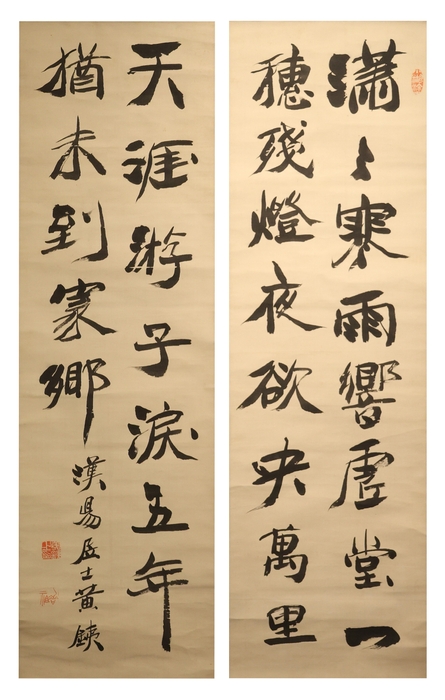 瀟〻寒雨響虛堂一
穗殘燈夜欲央萬里
天涯游子淚五年
猶未到家鄉
漢昜居士黃